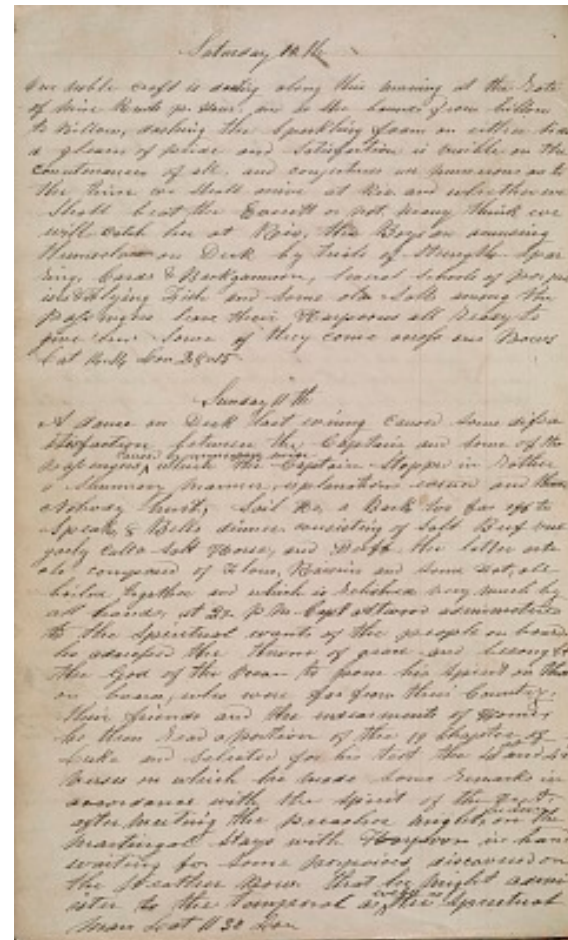 Saturday 10th
Our noble craft is dashing along this morning at the rate
of nine Knots pr. hour, and as she bounds from billow
to billow, dashing the Sparkling foam on either side
a gleam of pride and Satisfaction is visible on the
countenances of all, and conjectures are numerous as to
the time we shall arrive at Rio and whether we
Shall beat the Everett or not, many think we
will catch her at Rio, the Boys are amusing
themselves on Deck by trials of Strength Spar
ring, Cards & Backgammon, Several Schools of porpoi
Flying Fish and some old Salts among the
passengers have their Harpoons all ready to
give some of they come across our Bows
Lat Lon
Sunday 11th
A dance on Deck last evening caused some dissa
tisfaction between the Captain and some of the
passengers, caused by which the Captain Stopped in rather
a Summary manner, explanations ensued and
Nobody hurt, Sail Ho, a Bark too far off to
Speak, 8 Bells dinner consisting of Salt Beef vul
garly called Salt Horse, and Duff the latter arti
cle composed of Flour, Raisins and some
boiled together and which is relished very much by
all hands, at P.M. Capt administered
to the Spiritual wants of the people on board
he addressed the throne of grace and
the God of the Ocean to pour his Spirit on those
on board, who were far from their Country,
their friends and the endearments of Home,
he then read a portion of the 19 Chapter of
Luke and selected for his text the 41 and 42
verses on which he made some remarks in
accordance with the Spirit of the text,
after meeting the preacher might on the
martingal Stays with Harpoon in hand
waiting for some porpoises discovered on
the Weather Bow that he might admi
nister to the temporal as well as the Spiritual
man Lat 11 30 Lon